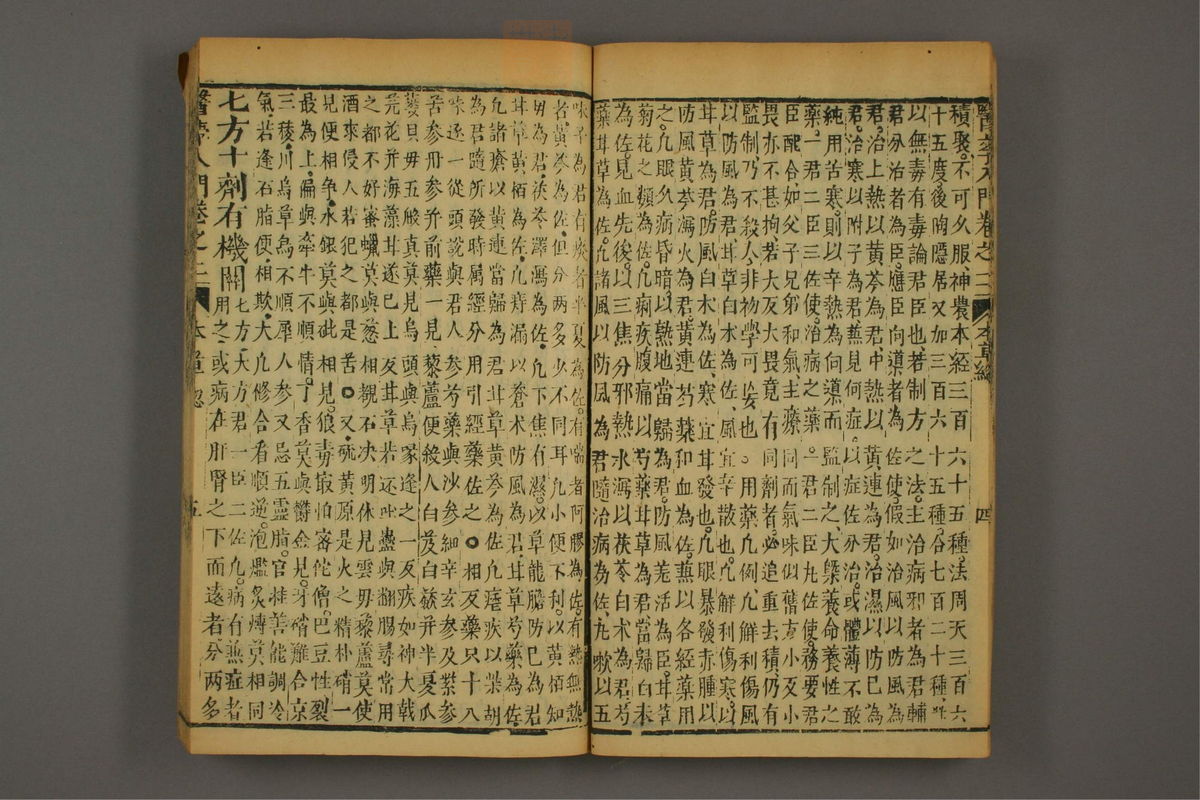 醫門入門卷之二 本草總 四
積聚不可久服神農本經三百六十五種法周天三百六
十五度後陶隱居又加三百六十五種合七百二十種
以無毒有毒論君臣也若制方之法主治病邪者為君輔
君分治者為臣應臣向導者為佐使假如治風以防風為
君治上熱以黃芩為君中熱以黃連為君治濕以防已為
君治寒以附子為君兼見何症以症佐分治或體薄不敢
純用苦寒則以辛熱為向導而監制之大槩養命養性之
藥一君二臣三佐使治病之藥一君二臣九佐使務要君
臣配合如父子兄弟和氣主療同而氣味似舊方小反小
畏亦不甚拘若大反大畏竟有同劑者必追重去積仍有
監制乃不殺人今非初學可妄也○用藥凡例凡解利傷風
以防風為君耳草白术為佐風宜辛散也凡解利傷寒以
耳草為君防風白术為佐寒宜耳發也凡眼暴發赤腫以
防風黃芩瀉火為君黃連芍藥和血為佐兼以各經藥用
之凡眼久病昏暗以熟地當歸為君防風羌活為臣耳草
菊花之類為佐凡痢疾腹痛以芍藥耳草為君當歸白术
為佐見血先後以三焦分邪熱水瀉以茯苓白术為君芍
藥耳草為佐凡諸風以防風為君隨治病為佐凡嗽以五
味子為君有痰者半夏為佐有喘者阿膠為佐有熱無熱
者黃芩為佐但分兩多少不同耳凡小便不利以黃栢知
毋為君茯苓澤瀉為佐凡下焦有濕以草龍膽防已為君
耳草黃栢為佐凡痔漏以蒼术防風為君耳草芍藥為佐
凡諸瘡以黃連當歸為君耳草黃芩為佐凡瘧疾以柴胡
為君隨所發時属經分用引經藥佐之○相反藥只十八
味逐一從頭說與君人參芍藥與沙參細辛玄參及紫參
苦參丹參并前藥一見藜蘆便殺人白芨白蘞并半夏瓜
蔞貝毋五般真莫見烏頭與烏喙逢之一反疾如神大戟
芫花并海藻耳遂已上反耳草若还吐蠱與翻腸尋常用
之都不好蜜蠟莫與葱相覩石决明休見雲毋藜蘆莫使
酒來侵人若犯之都是苦○又硫黃原是火之精朴硝一
見便相争水銀莫與砒相見狼毒最怕密佗僧巴豆性裂
最為上偏與牽牛不順情丁香莫與欝金見牙硝難合京
三稜川烏草烏不順犀人參又忌五靈脂官桂善能調冷
氣若逢石脂便相欺大凡修合看順逆泡爁炙煿莫相同
七方十劑有機關 七方一大方君一臣二佐九病有兼症者
用之或病在肝腎之下而遠者分两多
醫學入門卷之二 本草總 五